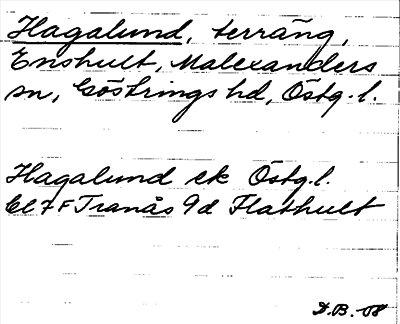 Hagalund, terräng,
Enshult, Malexanders
sn, Göstrings hd, Östg. l.
Hagalund ek Östg. l.
8F7F Tranås 9d Flathult
D.B. -08